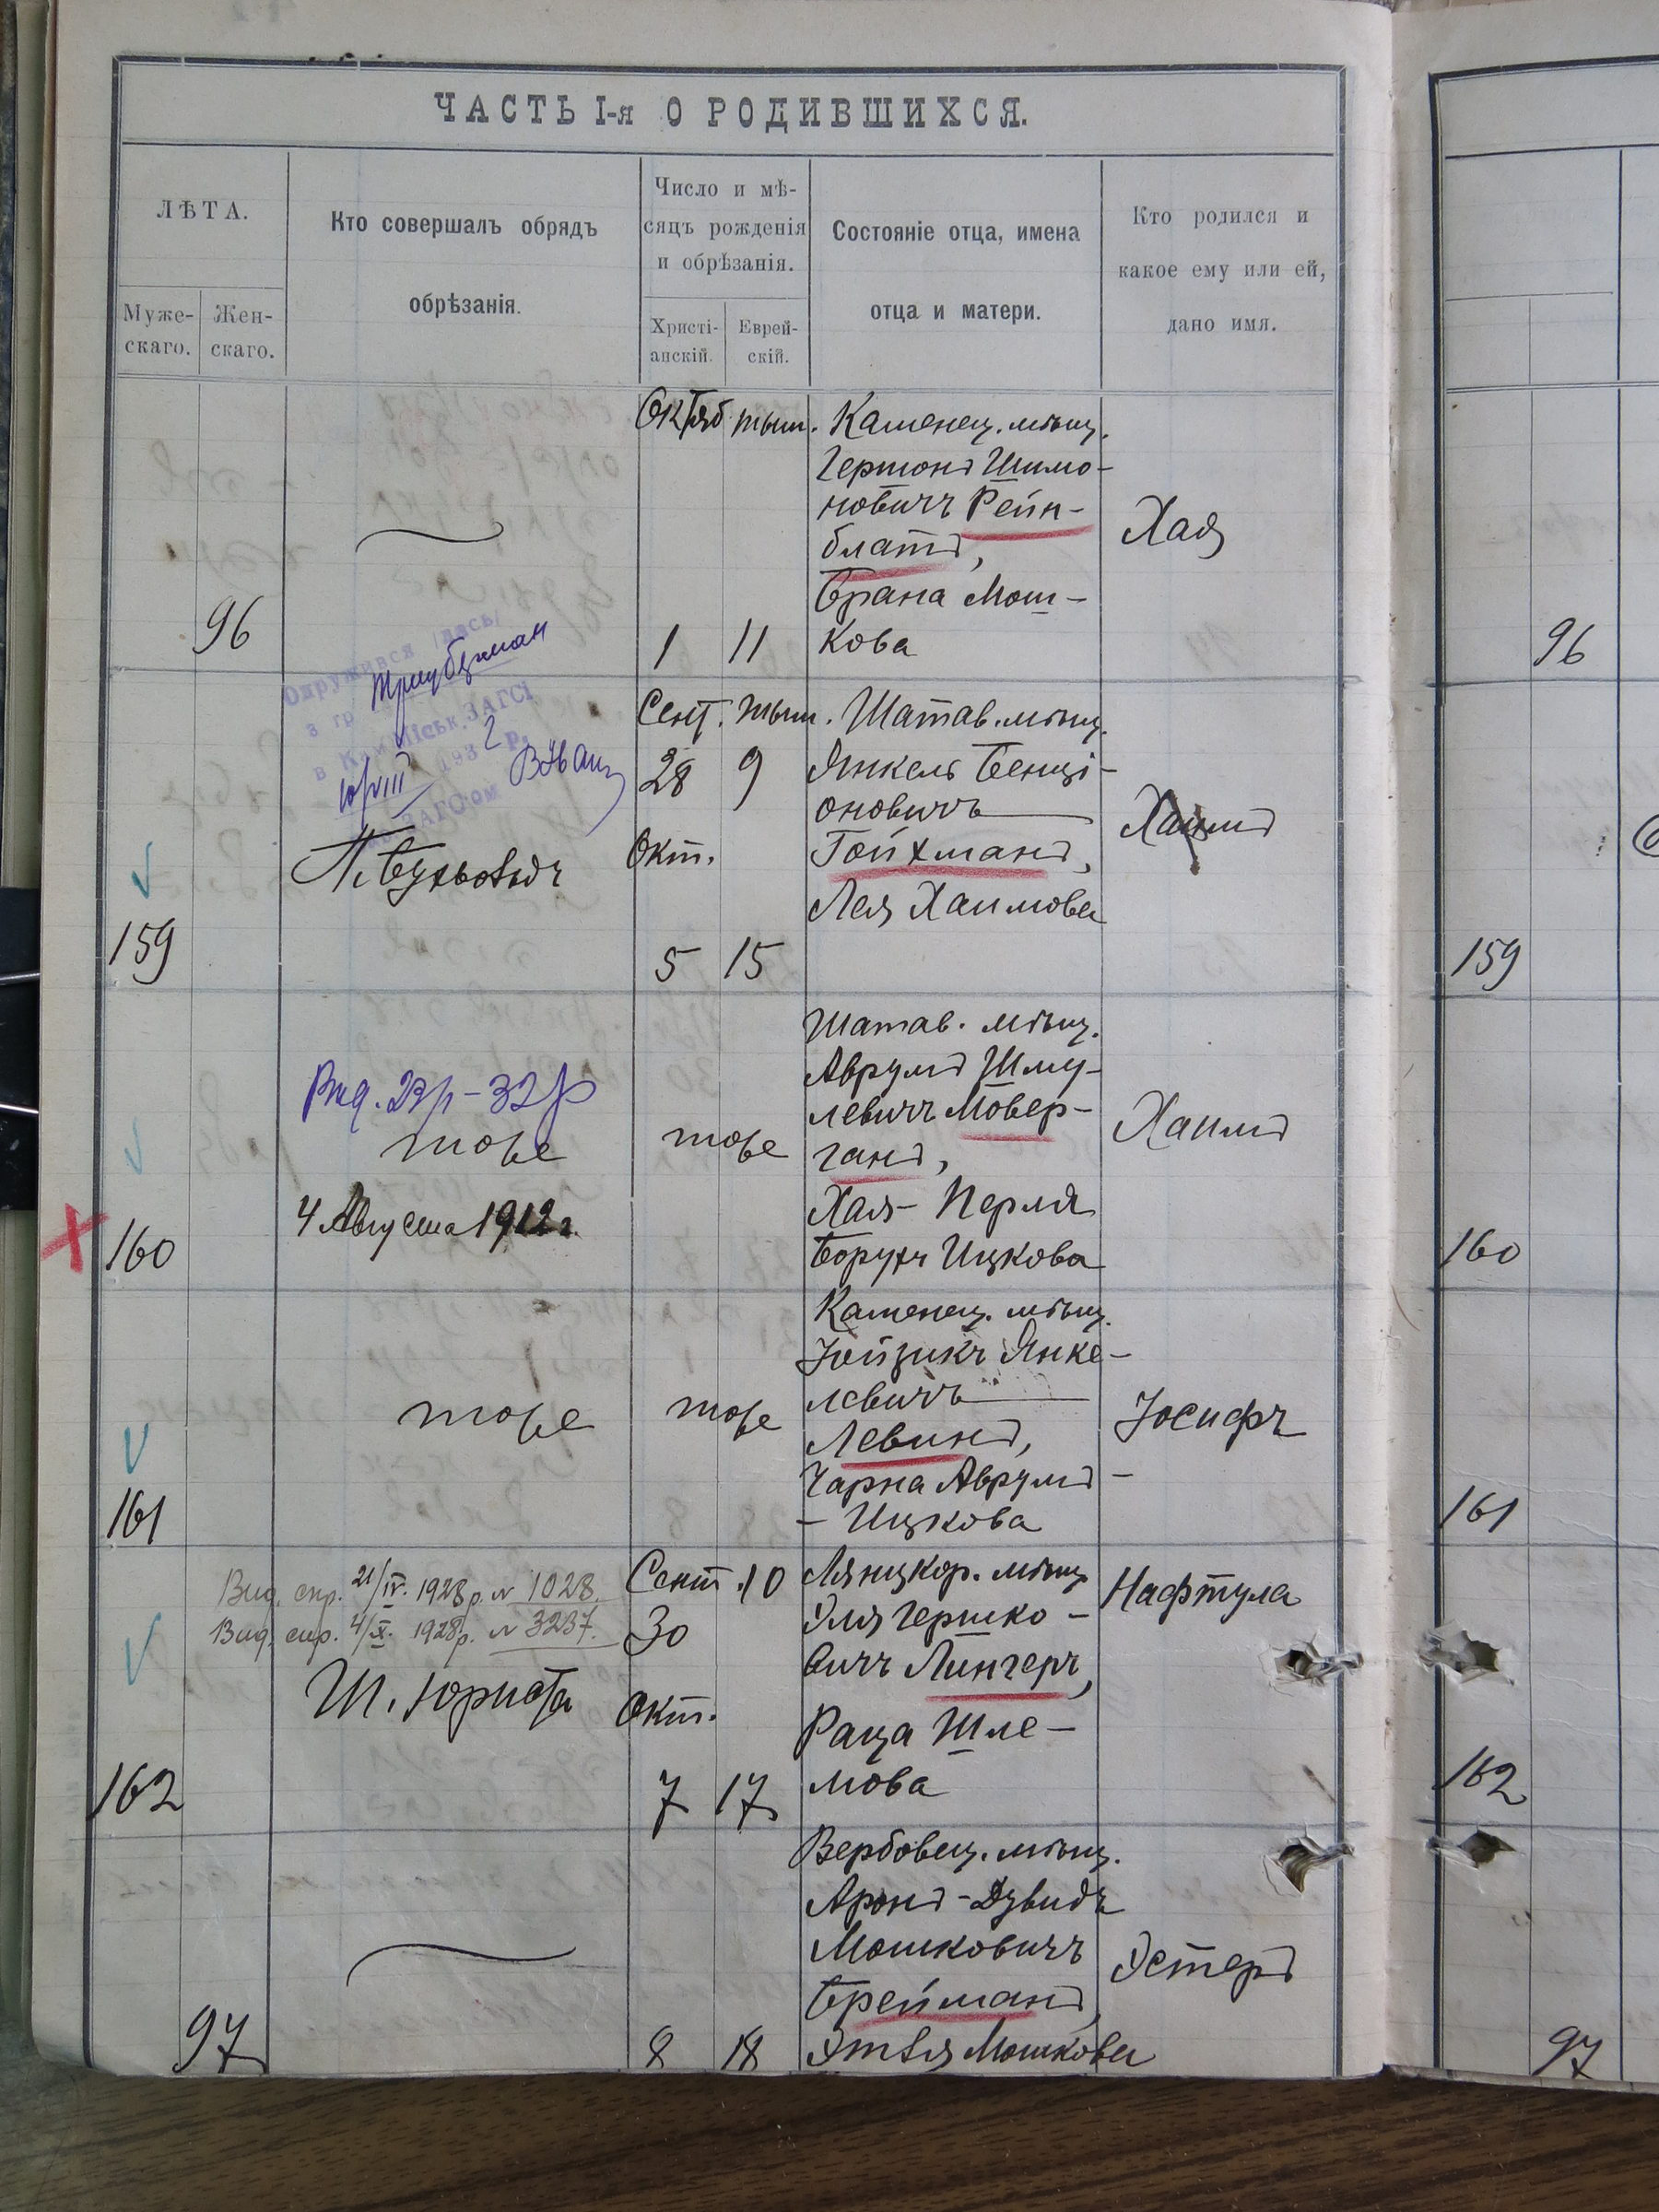 ЧАСТЬ I-я О РОДИВШИХСЯ.
ЛѢТА.
Муже-
скаго.
Жен-
скаго.
Кто совершалъ обрядъ
обрѣзанія.
Число и мѣ-
сяцъ рожденія
и обрѣзанія.
Христі-
анскій.
Еврей-
скій.
Состояніе отца, имена
отца и матери.
Кто родился и
какое ему или ей,
дано имя.
96
Октяб тыш.
1 11
Каменец. мѣщ.
Гершонъ Шимо-
новичъ Рейн-
блатъ,
Брана Мош-
кова
Хая
96
Одружився /лась/
з гр
в Кам Міськ. ЗАГСі
193 2 р.
159
Сент. тыш.
28 9
Окт.
5 15
Шатав. мѣщ.
Янкель Бенці-
оновичъ
Гойхманъ,
Лея Хаимова
Хаимъ
159
160
Вид. 23/ - 32 р
тоже
4 Августа 1912 г.
тоже
Шатав. мѣщ.
Аврумъ Шму-
левичъ Мовер-
ганъ,
Хая - Перля
Борухъ Ицкова
Хаимъ
160
161
тоже
тоже
Каменец. мѣщ.
Іойзикъ Янке-
левичъ
Левинъ,
Чарна Аврумъ -
- Ицкова
Іосифъ
161
Вид. спр. 21/IV. 1928 р. N 1028.
Вид. спр. 4/X. 1928 р. N 3237.
Ш. Юриста
162
Сент. 10
30
Окт.
7 17
Лянцкор. мѣщ
Уля Гершко -
вичъ Лингеръ,
Раца Шле -
мова
Нафтула
162
97
8 18
Вербовец. мѣщ.
Аронъ - Дувидъ
Мошковичъ
Брейманъ,
Этля Мошкова
Эстеръ
97